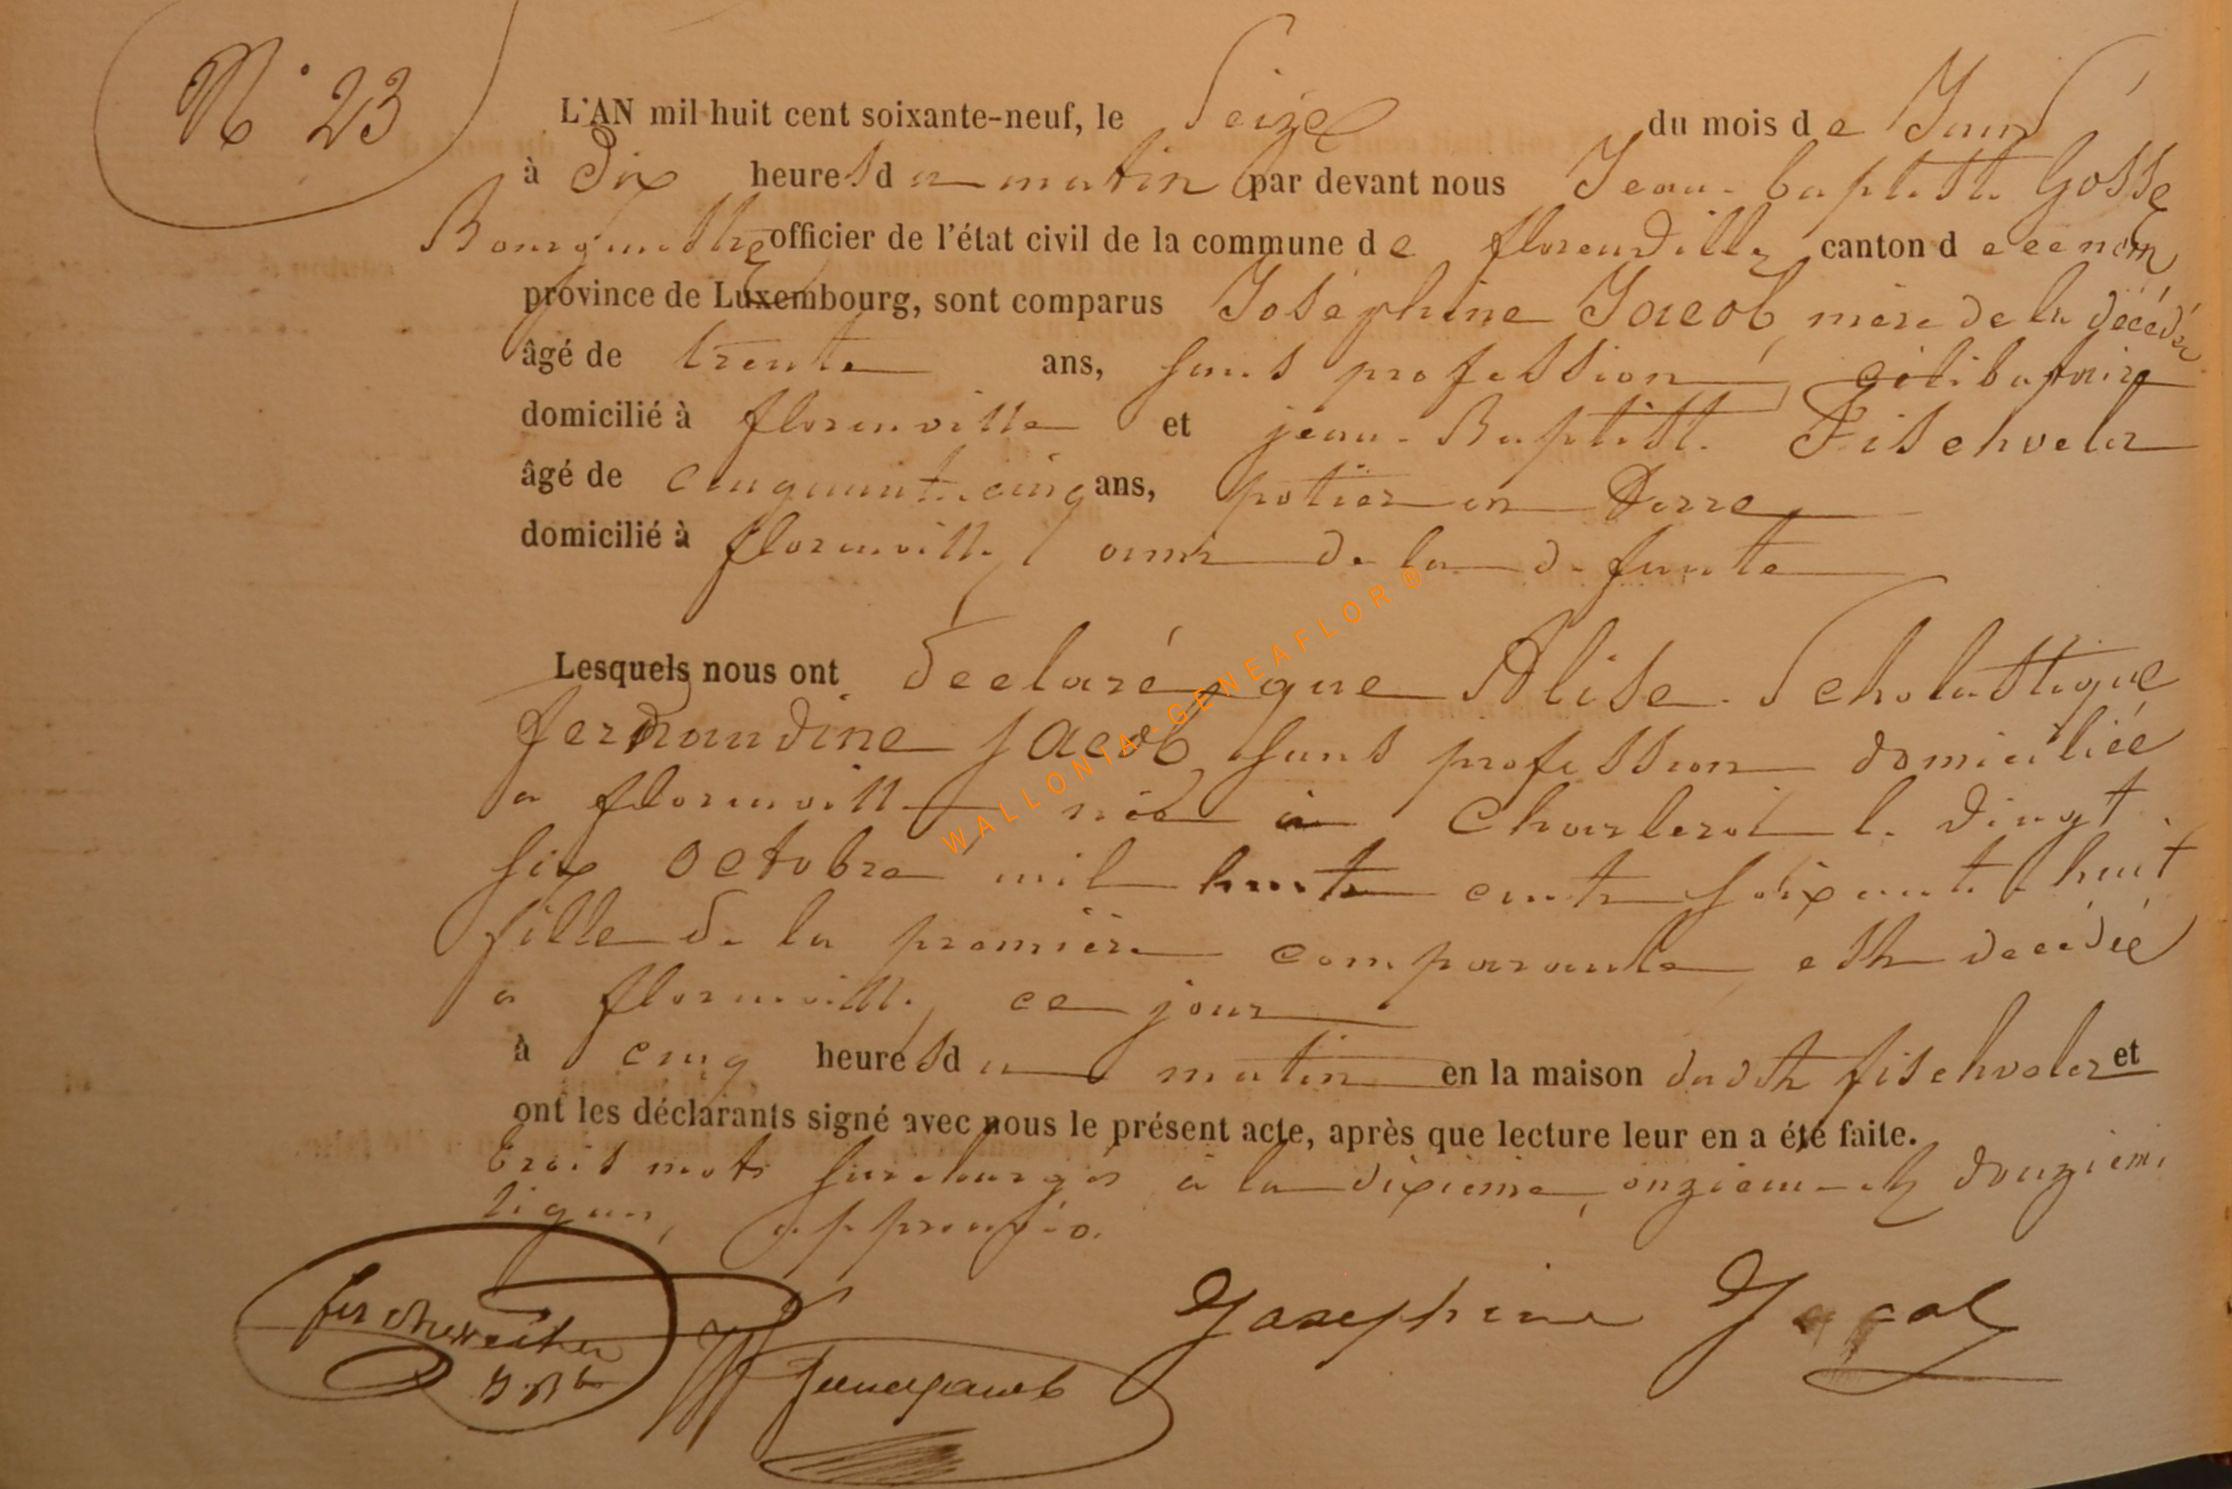 N° 23
L'AN mil huit cent soixante-neuf, le Seize du mois de Juin
à Dix heures du matin par devant nous Jean-baptiste Gosse
Bourgmestre officier de l'état civil de la commune de florenville canton de ce nom
province de Luxembourg, sont comparus Joséphine Jacob, mère de la décédée
âgé de trente ans, sans profession, célibataire
domicilié à florenville et jean-Baptiste Fischveler
âgé de cinquante cinq ans, potier en Terre
domicilié à florenville, ami de la defunte
Lesquels nous ont déclaré, que Alise Scholastique
fernandine Jacob, sans profession domiciliée
a florenville née à Charleroi le vingt
six octobre mil huit cent soixante huit
fille de la première comparante, est décédée
a florenville, ce jour
à cinq heures du matin en la maison dudit fischveler et
ont les déclarants signé avec nous le présent acte, après que lecture leur en a été faite.
trois mots surchargés à la dixième, onzième et douzième
lignes, approuvés.
J. Bte
Josephine Jacob
WALLONIA-GENEAFLOR ®